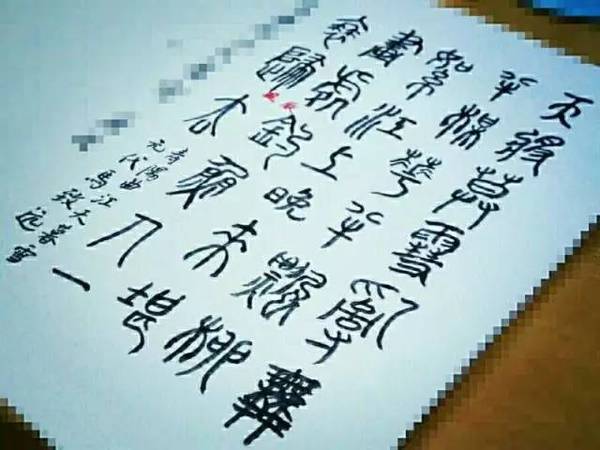 天將莫雪亂舞
半梅華半飄柳
絮江上晚來堪
畫處釣魚人一
蓑歸去
寿陽曲江天暮雪
元代馬致遠